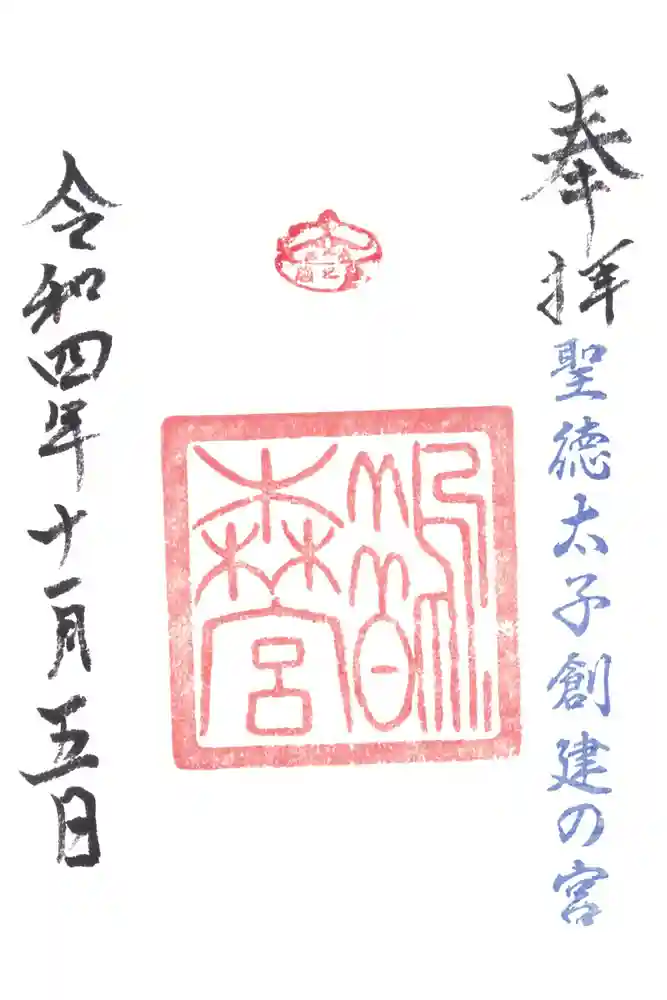 奉拝
聖徳太子創建の宮
鵲
森宮
令和四年十一月五日